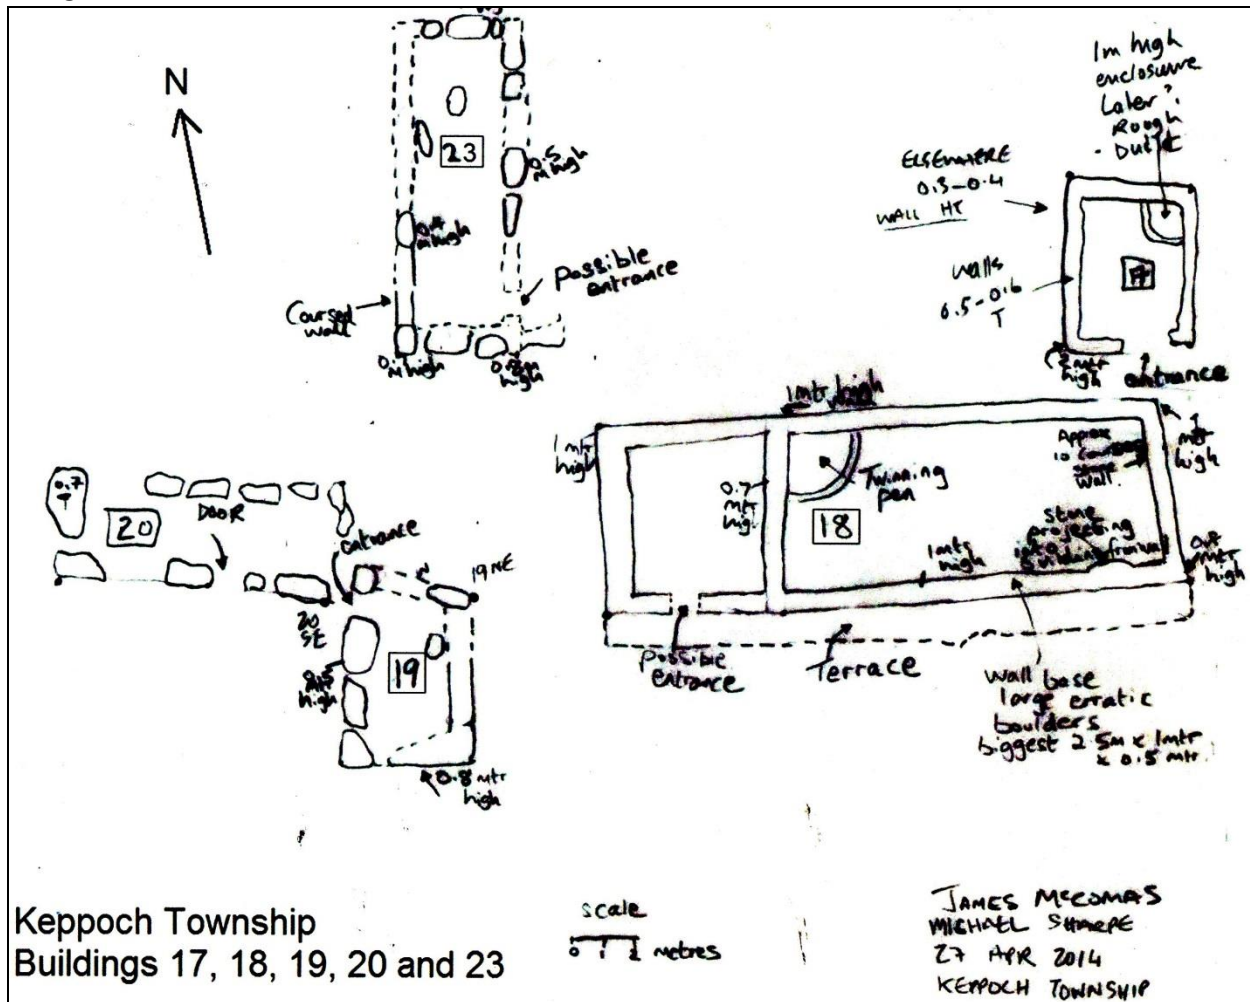 N
23
0.5
m high
0.4
m high
Possible
entrance
Coursed
wall
high
high
1m high
enclosure
Later?
Rough
ELSEWHERE
0.3-0.4
WALL HT
walls
0.5-0.6
T
high
entrance
1mtr high
1 mtr
high
1
mtr
high
Approx
10 courses
stone
wall.
0.7
mtr
high
Twinning
pen
18
stone
projecting
into
building from wall
1mtr
high
mtr
high
possible
entrance
Terrace
wall base
large erratic
boulders
biggest 2.5m x 1mtr
x 0.5 mtr.
0.7
T
20
DOOR
entrance
19 NE
20
SE
19
high
0.8 mtr
high
Keppoch Township
Buildings 17, 18, 19, 20 and 23
scale
0 1 2 metres
JAMES McCOMAS
MICHAEL SHARPE
27 APR 2014
KEPPOCH TOWNSHIP